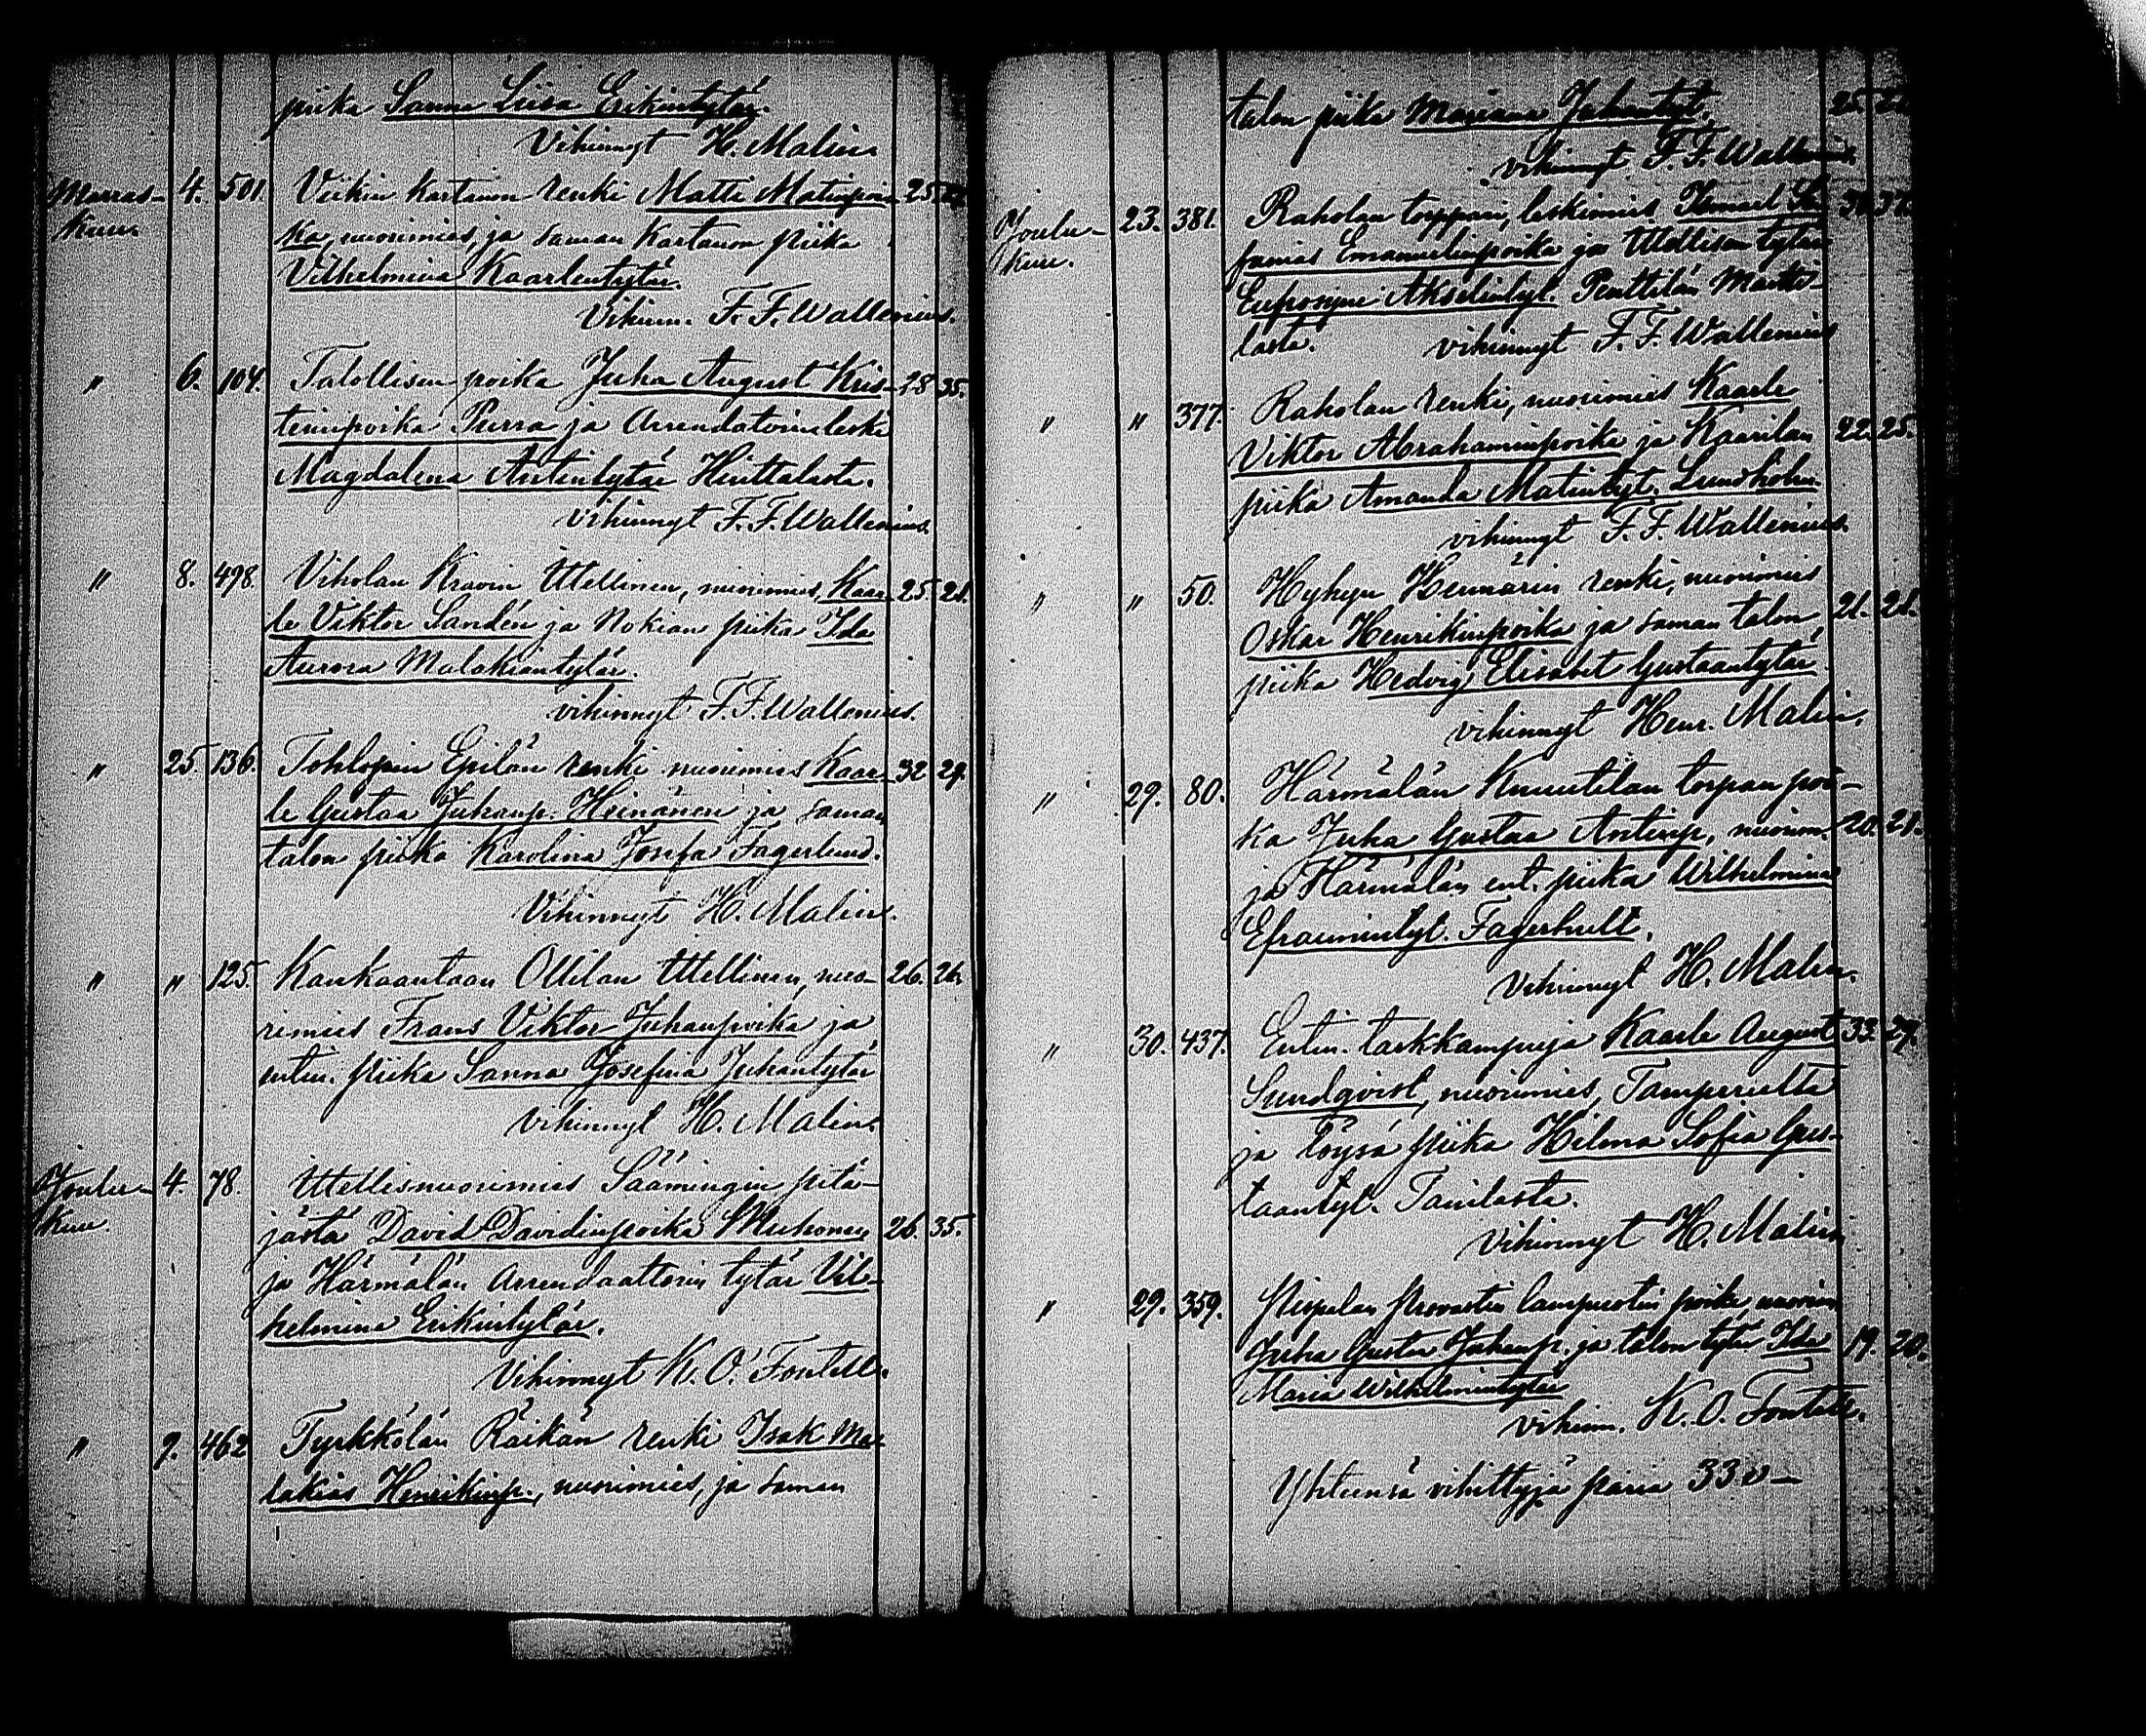 piika Sanna Liisa Erikintytär.
Vihinnyt H. Malin.
Marras- 4. 501. Viikin kartanon renki Matti Matinpoi- 25
kuu. ka, nuorimies, ja saman kartanon piika
Vilhelmina Kaarlentytär.
Vihinn. F. F. Wallenius.
" 6. 104. Talollisen poika Juha August Kris- 28 35.
teinpoika Purra ja Arrendatorinleski
Magdalena Antintytär Hinttalasta.
vihinnyt F. F. Wallenius.
" 8. 498. Viholan Kravin Itellinen, nuorimies, Kaar- 25 21.
le Viktor Sandén ja Nokian piika Ida
Aurora Malakiantytär.
vihinnyt F. F. Wallenius.
" 25. 136. Tohlopin Epilän renki nuorimies Kaar- 32 29.
le Gustaa Juhanp. Heinänen ja saman
talon piika Karolina Josefa Fagerlund.
Vihinnyt H. Malin.
" " 125. Kankaantaan Ollilan Itellinen, nuo- 26. 26.
rimies Frans Viktor Juhanpoika ja
entin. piika Sanna Josefina Juhantytär
vihinnyt H. Malin.
Joulu- 4. 78. Itellisnuorimies Säämingin pitä-
kuu. jästä David Davidinpoika Muhonen 26. 35.
ja Härmälän Arrendaattorin tytär Vil-
helmina Erikintytär.
Vihinnyt K. O. Fontell.
" 9. 462 Tyrkkölän Räikän renki Isak Ma-
lakias Henrikinp., nuorimies, ja saman
talon piika Mariana Juhantyt. 25. 22
vihinnyt F. F. Wallenius.
Joulu- 23. 381. Raholan torppari, leskimies 37.
kuu. Emanuelinpoika ja Itellisen tytär
Eufrosyne Akselintyt. Penttilän Martti-
lasta. vihinnyt F. F. Wallenius
" " 377. Raholan renki, nuorimies Kaarle
Viktor Abrahaminpoika ja Kaarilan 22. 25.
piika Amanda Matintyt. Lundholm.
vihinnyt F. F. Wallenius.
" " 50. Hyhyn Hennärin renki, nuorimies
Oskar Henrikinpoika ja saman talon 21. 21.
piika Hedvig Elisabet Gustaantytär
vihinnyt Henr. Malin.
" 29. 80. Härmälän Knuutilan torpan poi-
ka Juha Gustaa Antinp., nuorim. 20. 21.
ja Härmälän ent. piika Wilhelmina
Efraimintyt. Fagerhult.
Vihinnyt H. Malin.
" 30. 437. Entin. tarkkampuja Kaarle August 33. 29.
Sundqvist, nuorimies, Tampereelta
ja Löysä piika Hilma Sofia Gus-
taantyt. Tanilasta.
Vihinnyt H. Malin
" 29. 359. Pispalan Provastin lampuotin poika, nuorim.
Juha Gusta Juhanp. ja talon tytär Ida 19. 20.
Maria Wilhelmintytär
Vihinn. K. O. Fontell.
Yhteensä vihittyjä paria 33